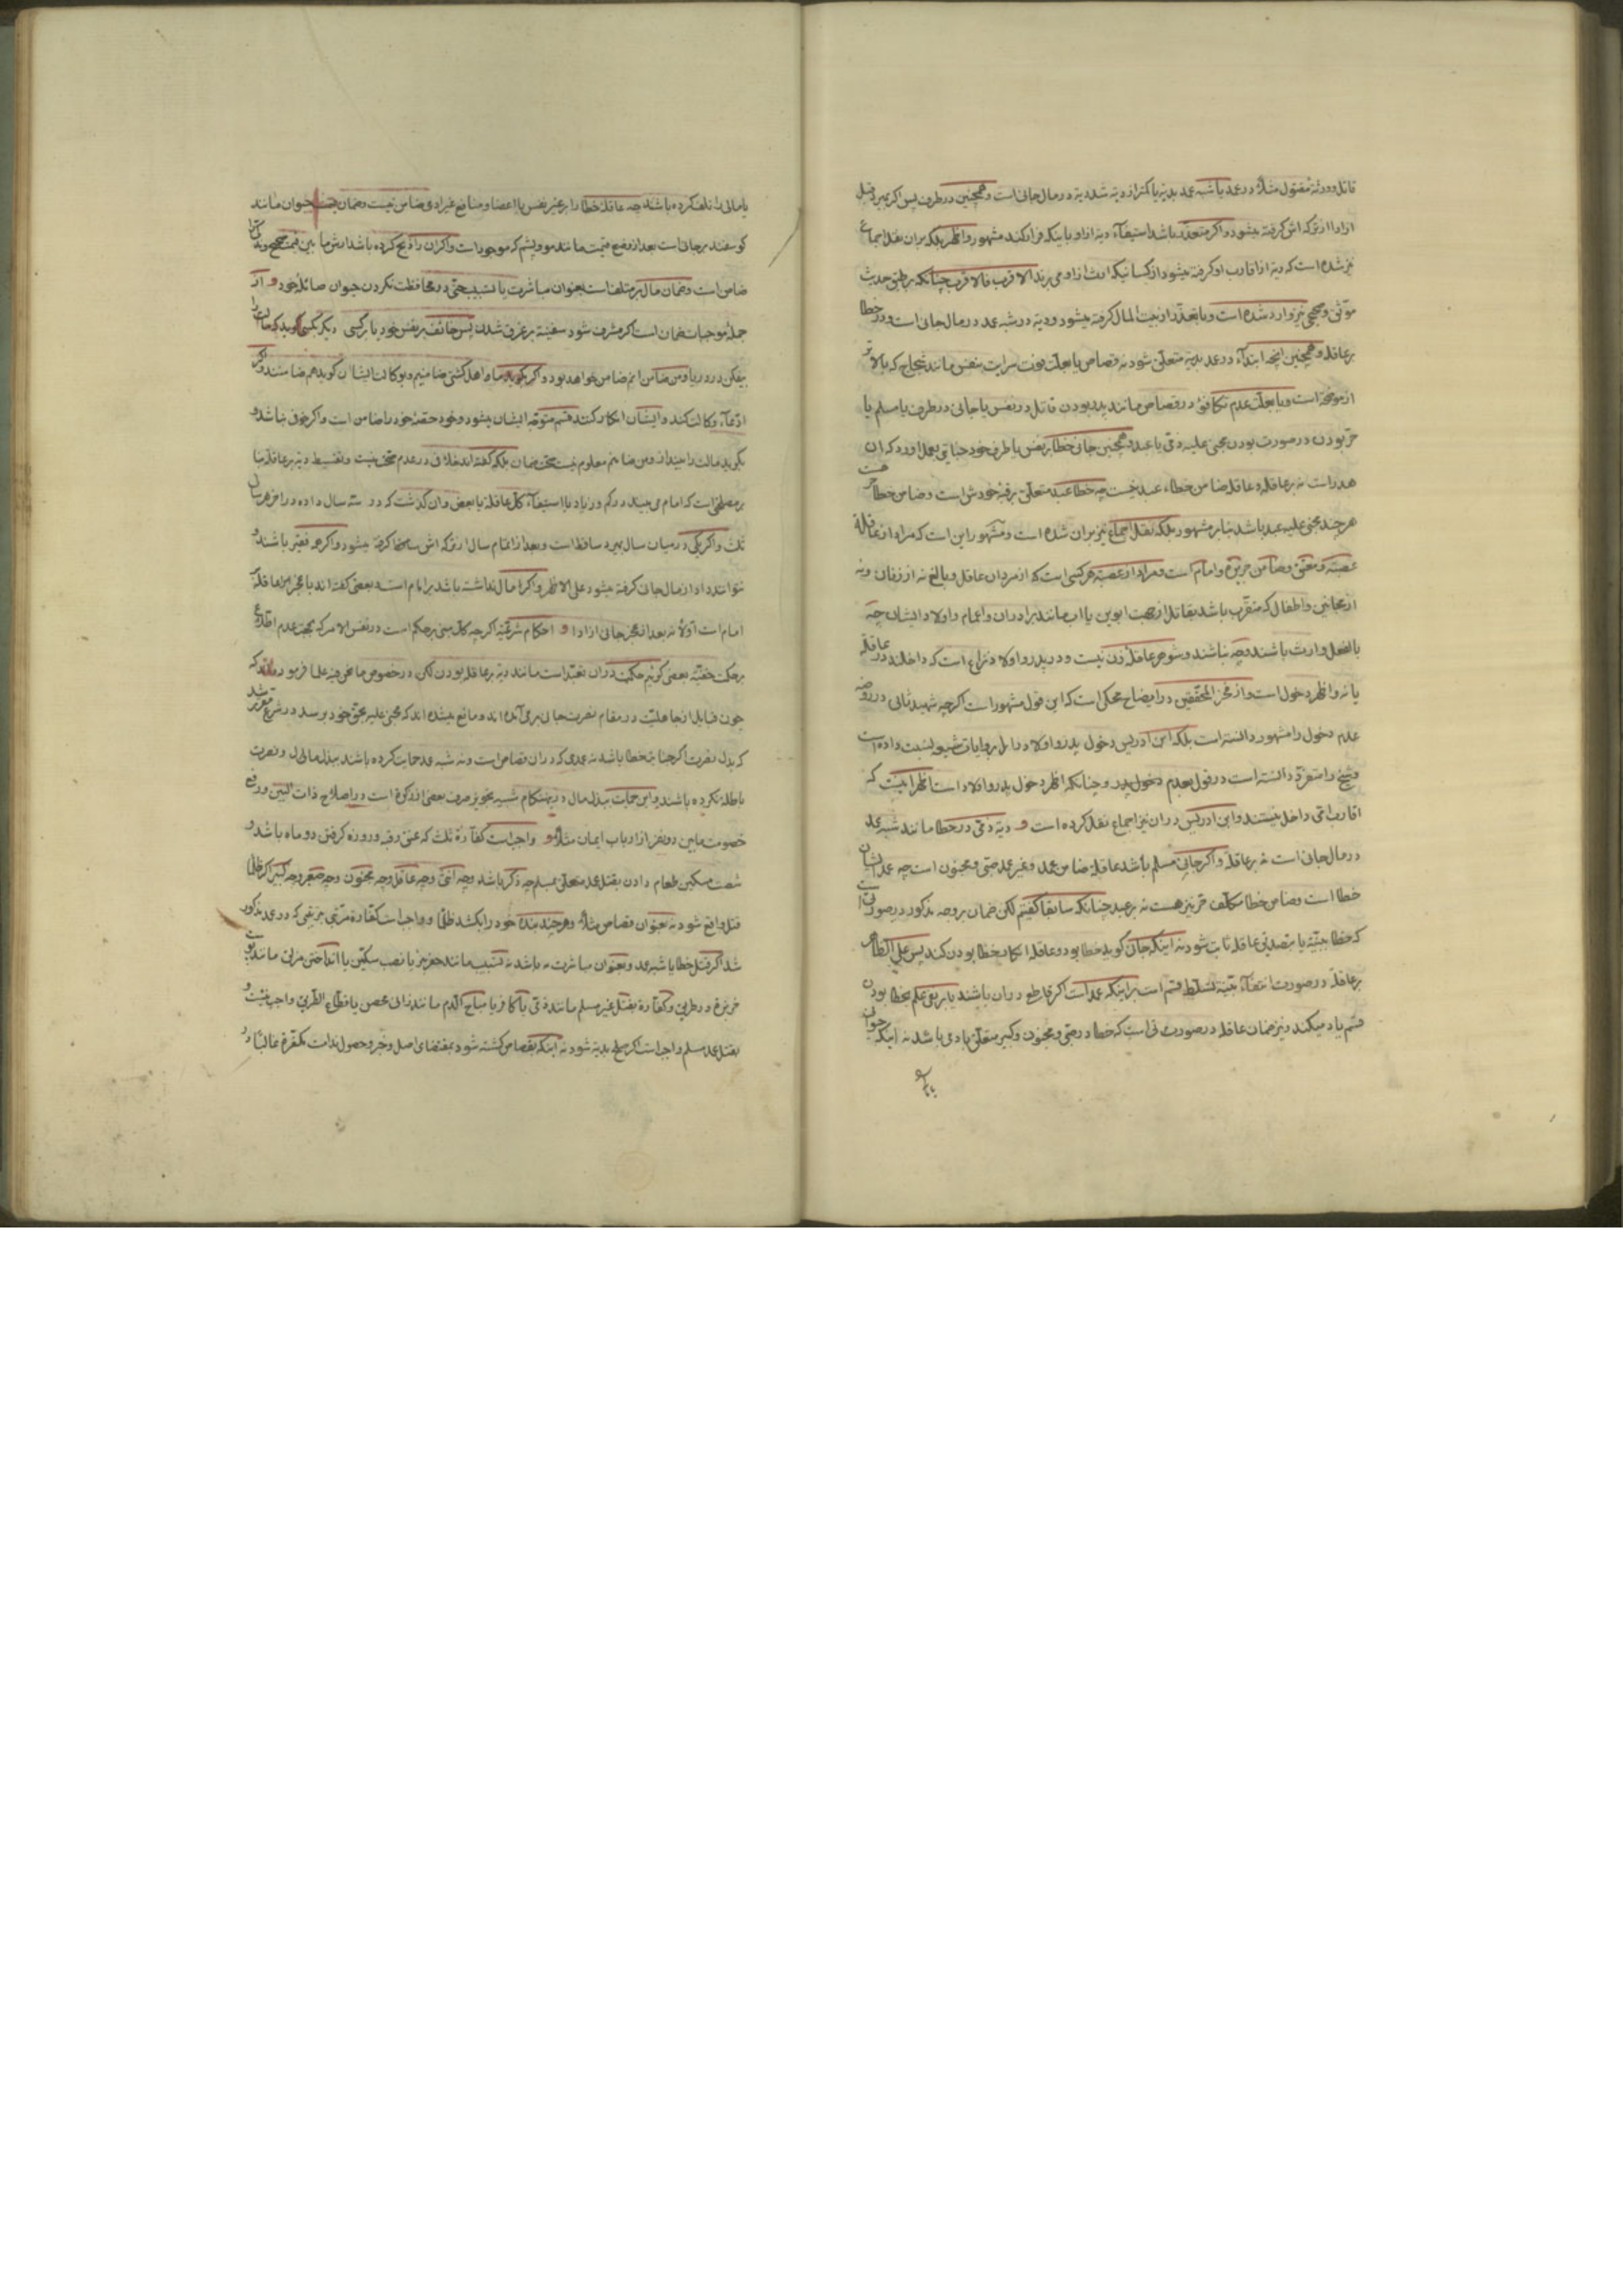 قاتل و ورثهٔ مقتول مثلاً در عمد یا شبه عمد بدیه یا کمتر از دیه شد دیه در مال جانی است و همچنین در طرف پس اگر بمیرد قبل
از ادا از ترکه اش گرفته میشود و اگر متعذر باشد استیفاء دیه از او باینکه فرار کند مشهور و اظهر بلکه بران نقل اجماع
نیز شده است که دیه از اقارب او گرفته میشود از کسانیکه ارث از او می برند الاقرب فالاقرب چنانکه بر طبق حدیث
موثق و صحیح نیز وارد شده است و با تعذر از بیت المال گرفته میشود و دیه در شبه عمد در مال جانی است و در خطا
بر عاقله و همچنین آنچه ابتداءً در عمد بدیه متعلق شود نه قصاص یا بعلت فوت سرایت بنفس مانند شجاج که بالاتر
از موضحه است و یا بعلت عدم تکافؤ در قصاص مانند پدر بودن قاتل در نفس یا جانی در طرف یا مسلم یا
حر بودن در صورت بودن مجنی علیه ذمی یا عبد و همچنین جانی خطا بر نفس یا طرف خود جنایتی بعمل اورد که ان
هدر است نه بر عاقله و عاقله ضامن خطاء عبد نیست چه خطا عبد متعلق برقبه خودش است و ضامن خطا حر هست
هر چند مجنی علیه عبد باشد بنا بر مشهور بلکه نقل اجماع نیز بران شده است و مشهور این است که مراد از عاقله
عصبه و معتق و ضامن جریره و امام است و مراد از عصبه هر کسی است که از مردان عاقل و بالغ نه از زنان و نه
از مجانین و اطفال که متقرب باشد بقاتل از جهت ابوین یا اب مانند برادران و اعمام و اولاد ایشان چه
بالفعل وارث باشند و چه نباشند و شوهر عاقله زن نیست و در پدر و اولاد نزاع است که داخلند در عاقله
یا نه و اظهر دخول است و از فخر المحققین در ایضاح محکی است که این قول مشهور است اگرچه شهید ثانی در روضه
عدم دخول را مشهور دانسته است بلکه ابن ادریس دخول پدر و اولاد را بل بروایات شیعه نسبت داده است
و شیخ را متفرد دانسته است در قول بعدم دخول پدر و چنانکه اظهر دخول پدر و اولاد است اظهر اینست که
اقارب امی داخل نیستند و ابن ادریس دران نیز اجماع نقل کرده است و دیه ذمی در خطا مانند شبه عمد
در مال جانی است نه بر عاقله و اگر جانی مسلم باشد عاقله ضامن عمد و غیر عمد صبی و مجنون است چه عمد ایشان
خطا است و ضامن خطا مکلف حر نیز هست نه بر عبد چنانکه سابقا گفتیم لکن ضمان بر وجه مذکور در صورتی است
که خطا ببینه یا بتصدیق عاقله ثابت شود نه اینکه جانی گوید خطا بود و عاقله انکار خطا بودن کند پس علی الظاهر
بر عاقله در صورت انتفاء بینه تسلط قسم است بر اینکه عمد است اگر قاطع دران باشند یا بر نفی علم بخطا بودن
قسم یاد میکند و نیز ضمان عاقله در صورتی است که خطا در صبی و مجنون و کبیر متعلق بادمی باشد نه اینکه حیوانی
یا مالی را تلف کرده باشد چه عاقله خطا را بر غیر نفس یا اعضا و منافع غیر ادمی ضامن نیست و ضمان قیمت حیوان مانند
گوسفند بر جانی است بعد از وضع قیمت مانند مو و پشم که موجود است و اگر ان را ذبح کرده باشد ارش ما بین قیمت صحیح
ضامن است و ضمان مال بر متلف است بعنوان مباشرت یا تسبیب حتی در محافظت نکردن حیوان صائلهٔ خود و از
جملهٔ موجبات ضمان است اگر مشرف شود سفینه بر غرق شدن پس خائف بر نفس خود یا بر کسی دیگر بکسی گوید که مالت را
بیفکن در دریا و من ضامن انم ضامن خواهد بود و اگر بگوید ما و اهل کشتی ضامنیم و بوکالت ایشان گوید هم ضامنند و اگر
ادعاء وکالت کند و ایشان انکار کنند قسم متوجه ایشان میشود و خود حصهٔ خود را ضامن است و اگر خوفی نباشد و
بگوید مالت را بینداز و من ضامنم معلوم نیست تحقق ضمان بلکه گفته اند خلافی در عدم تحقق نیست و تقسیط دیه بر عاقله بنا
بر مصلحتی است که امام می بیند در کم و زیاد با استیفاء کل عاقله یا بعض و ان گذشت که در سه سال داده در اخر هر سالی
ثلث و اگر یکی در میان سال بمیرد ساقط است و بعد از اتمام سال از ترکه اش سهمش گرفته میشود و اگر همه فقیر باشند و
نتوانند داد از مال جانی گرفته میشود علی الاظهر و اگر او مال نداشته باشد بر امام است و بعضی گفته اند با عجز عاقله بر
امام است اولاً نه بعد از عجز جانی از ادا و احکام شرعیه اگرچه کل مبنی بر حکم است در نفس الامر که بجهت عدم اطلاع
بر حکمت خفیه بعضی گوئیم حکمت دران تعبد است مانند دیه بر عاقله بودن لکن در خصوص ما نحن فیه علما فرموده اند که
چون قبایل از جاهلیت در مقام نصرت جانی بر می آمده اند و مانع میشده اند که مجنی علیه بحق خود برسد در شرع مقرر شد
که بدل نصرت اگر جنایت خطا باشد نه عمدی که دران قصاص است و نه شبه عمد حمایت کرده باشند ببذل مالی و نصرت
باطله نکرده باشند و این حمایت ببذل مال درین مقام شبیه بتجویز صرف بعضی از زکوة است در اصلاح ذات البین و رفع
خصومت مابین دو نفر از ارباب ایمان مثلاً و واجب است کفارهٔ ثلث که عتق رقبه و روزه گرفتن دو ماه باشد و
شصت مسکین طعام دادن بقتل عمد متعلق بمسلم چه ذکر باشد و چه انثی و چه عاقل و چه مجنون و چه صغیر و چه کبیر اگر ظلماً
قتل واقع شود نه بعنوان قصاص مثلاً و هر چند بندهٔ خود را بکشد ظلماً و واجب است کفارهٔ مرتبه بترتیبی که در عمد مذکور
شد اگر قتل خطا یا شبه عمد و بعنوان مباشرت باشد نه تسبیب مانند حفر بئر یا نصب سکین یا انداختن مزلق مانند پوست
خربزه در طریق و کفاره بقتل غیر مسلم مانند ذمی یا کافر یا مباح الدم مانند زانی محصن یا قطاع الطریق واجب نیست و
بقتل عمد مسلم واجب است اگر صلح بدیه شود نه اینکه بقصاص کشته شود بمقتضای اصل و خبر و حصول ندامت مکفره غالباً در